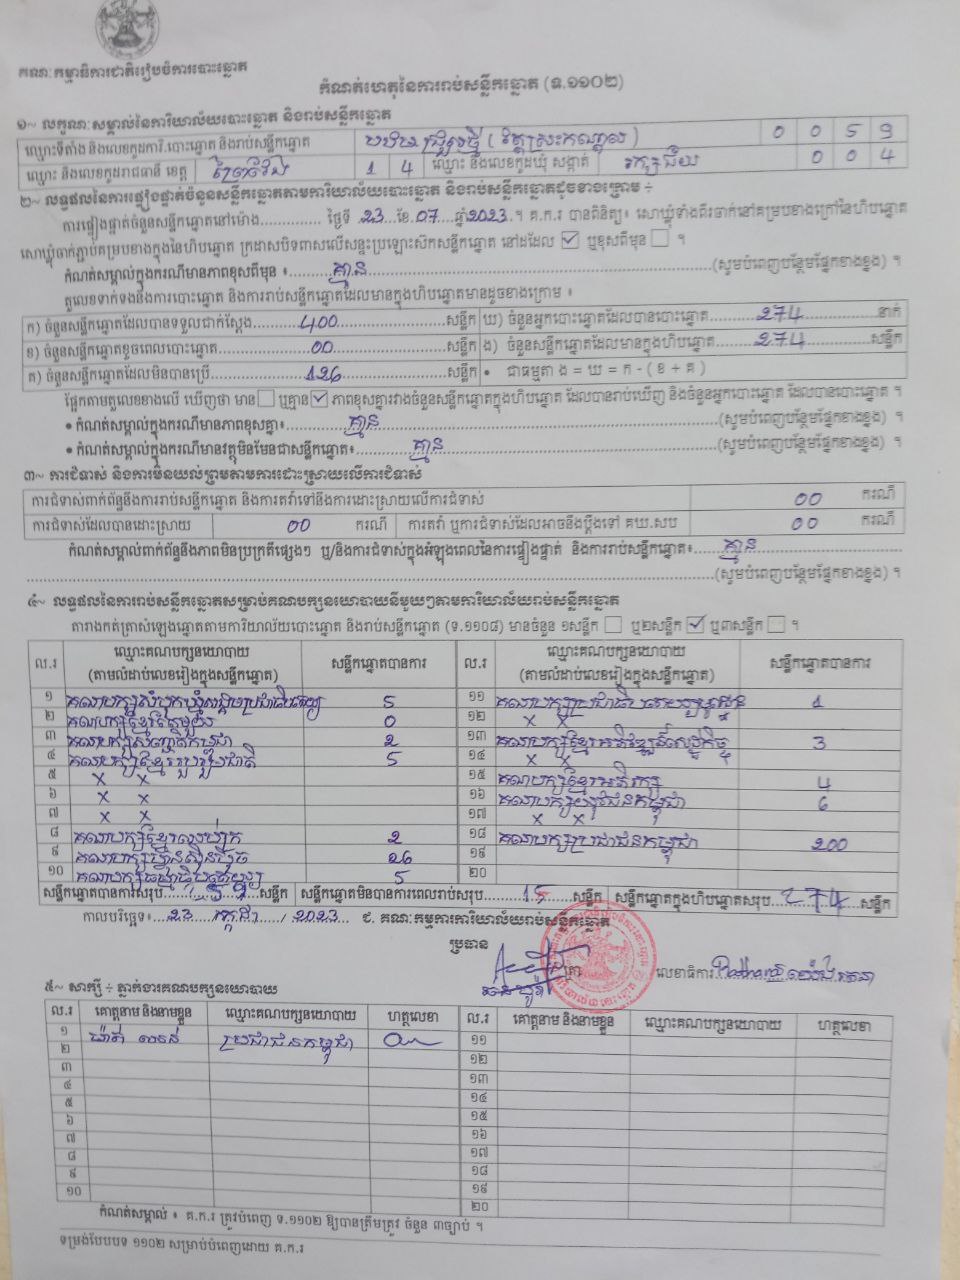 គណៈកម្មាធិការជាតិរៀបចំការបោះឆ្នោត
កំណត់ហេតុនៃការរាប់សន្លឹកឆ្នោត (ទ.១១០២)
១~ លក្ខណៈសម្គាល់នៃការិយាល័យបោះឆ្នោត និងរាប់សន្លឹកឆ្នោត
ឈ្មោះទីតាំង និងលេខកូដការិ.បោះឆ្នោត និងរាប់សន្លឹកឆ្នោត 0 0 5 9
ឈ្មោះ និងលេខកូដរាជធានី ខេត្ត ព្រៃវែង 1 4 ឈ្មោះ និងលេខកូដឃុំ សង្កាត់ 0 0 4
២~ លទ្ធផលនៃការផ្ទៀងផ្ទាត់ចំនួនសន្លឹកឆ្នោតតាមការិយាល័យបោះឆ្នោត និងរាប់សន្លឹកឆ្នោតដូចខាងក្រោម ÷
ការផ្ទៀងផ្ទាត់ចំនួនសន្លឹកឆ្នោតនៅម៉ោង.............. ថ្ងៃទី .23...ខែ.07....ឆ្នាំ2023.។ គ.ក.រ បានពិនិត្យ៖ សោឃ្លុំទាំងពីរចាក់នៅគម្របខាងក្រៅនៃហិបឆ្នោត
សោឃ្លុំចាក់ភ្ជាប់គម្របខាងក្នុងនៃហិបឆ្នោត ក្រដាសបិទពាសលើសន្ទះប្រឡោះស៊កសន្លឹកឆ្នោត នៅដដែល ☑ ឬខុសពីមុន ☐ ។
កំណត់សម្គាល់ក្នុងករណីមានភាពខុសពីមុន ៖..........គ្មាន..........(សូមបំពេញបន្ថែមផ្នែកខាងខ្នង) ។
តួលេខទាក់ទងនឹងការបោះឆ្នោត និងការរាប់សន្លឹកឆ្នោតដែលមានក្នុងហិបឆ្នោតមានដូចខាងក្រោម ៖
ក) ចំនួនសន្លឹកឆ្នោតដែលបានទទួលជាក់ស្តែង..........400..........សន្លឹក ឃ) ចំនួនអ្នកបោះឆ្នោតដែលបានបោះឆ្នោត..........274..........នាក់
ខ) ចំនួនសន្លឹកឆ្នោតខូចពេលបោះឆ្នោត..........00..........សន្លឹក ង) ចំនួនសន្លឹកឆ្នោតដែលមានក្នុងហិបឆ្នោត..........274..........សន្លឹក
គ) ចំនួនសន្លឹកឆ្នោតដែលមិនបានប្រើ..........126..........សន្លឹក • ជាធម្មតា ង = ឃ = ក - ( ខ + គ )
ផ្អែកតាមតួលេខខាងលើ ឃើញថា មាន ☐ ឬគ្មាន ☑ ភាពខុសគ្នារវាងចំនួនសន្លឹកឆ្នោតក្នុងហិបឆ្នោត ដែលបានរាប់ឃើញ និងចំនួនអ្នកបោះឆ្នោត ដែលបានបោះឆ្នោត ។
• កំណត់សម្គាល់ក្នុងករណីមានភាពខុសគ្នា៖..........គ្មាន..........(សូមបំពេញបន្ថែមផ្នែកខាងខ្នង) ។
• កំណត់សម្គាល់ក្នុងករណីមានវត្ថុមិនមែនជាសន្លឹកឆ្នោត៖..........គ្មាន..........(សូមបំពេញបន្ថែមផ្នែកខាងខ្នង) ។
៣~ ការជំទាស់ និងការមិនយល់ព្រមតាមការដោះស្រាយលើការជំទាស់
ការជំទាស់ពាក់ព័ន្ធនឹងការរាប់សន្លឹកឆ្នោត និងការតវ៉ាទៅនឹងការដោះស្រាយលើការជំទាស់ 00 ករណី
ការជំទាស់ដែលបានដោះស្រាយ 00 ករណី ការតវ៉ា ឬការជំទាស់ដែលអាចនឹងប្តឹងទៅ គឃ.សប 00 ករណី
កំណត់សម្គាល់ពាក់ព័ន្ធនឹងភាពមិនប្រក្រតីផ្សេងៗ ឬ/និងការជំទាស់ក្នុងអំឡុងពេលនៃការផ្ទៀងផ្ទាត់ និងការរាប់សន្លឹកឆ្នោត៖..........គ្មាន..........
..........(សូមបំពេញបន្ថែមផ្នែកខាងខ្នង) ។
៤~ លទ្ធផលនៃការរាប់សន្លឹកឆ្នោតសម្រាប់គណបក្សនយោបាយនីមួយៗតាមការិយាល័យរាប់សន្លឹកឆ្នោត
តារាងកត់ត្រាសំឡេងឆ្នោតតាមការិយាល័យបោះឆ្នោត និងរាប់សន្លឹកឆ្នោត (ទ.១១០៨) មានចំនួន ១សន្លឹក ☐ ឬ២សន្លឹក ☑ ឬ៣សន្លឹក ☐ ។
ល.រ ឈ្មោះគណបក្សនយោបាយ (តាមលំដាប់លេខរៀងក្នុងសន្លឹកឆ្នោត) សន្លឹកឆ្នោតបានការ ល.រ ឈ្មោះគណបក្សនយោបាយ (តាមលំដាប់លេខរៀងក្នុងសន្លឹកឆ្នោត) សន្លឹកឆ្នោតបានការ
១ គណបក្សសំបុកឃ្មុំសង្គមប្រជាធិបតេយ្យ 5 ១១ 1
២ 0 ១២ x x
៣ គណបក្សសញ្ជាតិកម្ពុជា 2 ១៣ គណបក្សខ្មែរអភិវឌ្ឍន៍សេដ្ឋកិច្ច 3
៤ គណបក្សខ្មែររួបរួមជាតិ 5 ១៤ x x
៥ x x ១៥ គណបក្សខ្មែរអភិរក្ស 4
៦ x x ១៦ គណបក្សយុវជនកម្ពុជា 6
៧ x x ១៧ x x
៨ 2 ១៨ គណបក្សប្រជាជនកម្ពុជា 200
៩ គណបក្សហ្វ៊ុនស៊ិនប៉ិច 26 ១៩
១០ គណបក្សធម្មាធិបតេយ្យ 5 ២០
សន្លឹកឆ្នោតបានការសរុប..........សន្លឹក សន្លឹកឆ្នោតមិនបានការពេលរាប់សរុប..........15..........សន្លឹក សន្លឹកឆ្នោតក្នុងហិបឆ្នោតសរុប..........274..........សន្លឹក
កាលបរិច្ឆេទ៖.....23.....កក្កដា...../2023... ជ. គណៈកម្មការការិយាល័យរាប់សន្លឹកឆ្នោត
ប្រធាន
លេខាធិការ
៥~ សាក្សី ÷ ភ្នាក់ងារគណបក្សនយោបាយ
ល.រ គោត្តនាម និងនាមខ្លួន ឈ្មោះគណបក្សនយោបាយ ហត្ថលេខា ល.រ គោត្តនាម និងនាមខ្លួន ឈ្មោះគណបក្សនយោបាយ ហត្ថលេខា
១ ប្រជាជនកម្ពុជា ១១
២ ១២
៣ ១៣
៤ ១៤
៥ ១៥
៦ ១៦
៧ ១៧
៨ ១៨
៩ ១៩
១០ ២០
កំណត់សម្គាល់ ៖ គ.ក.រ ត្រូវបំពេញ ទ.១១០២ ឱ្យបានត្រឹមត្រូវ ចំនួន ៣ច្បាប់ ។
ទម្រង់បែបបទ ១១០២ សម្រាប់បំពេញដោយ គ.ក.រ